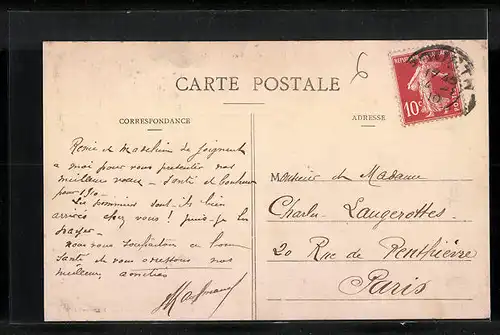 CARTE POSTALE
6
CORRESPONDANCE
ADRESSE
10c
René et Madeleine se joignent
à moi pour vous présenter nos
meilleurs vœux – Santé et bonheur
pour 1910 –
Les pommiers sont-ils bien
arrivés chez vous ! puis-je les
payer –
Nous vous souhaitons en bonne
santé et vous adressons nos
meilleures amitiés
Monsieur et Madame
Charles Laugerottes
20 Rue de Penthièvre
Paris